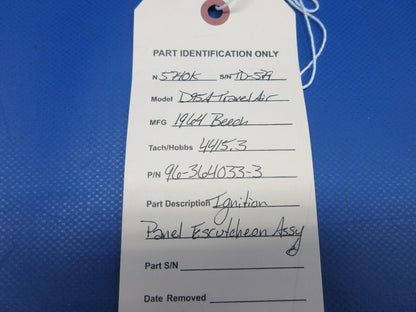 PART IDENTIFICATION ONLY
N 5740K S/N TD-579
Model D95A Travel Air
MFG 1964 Beech
Tach/Hobbs 4415.3
P/N 96-364033-3
Part Description Ignition
Panel Escutcheon Assy
Part S/N
Date Removed